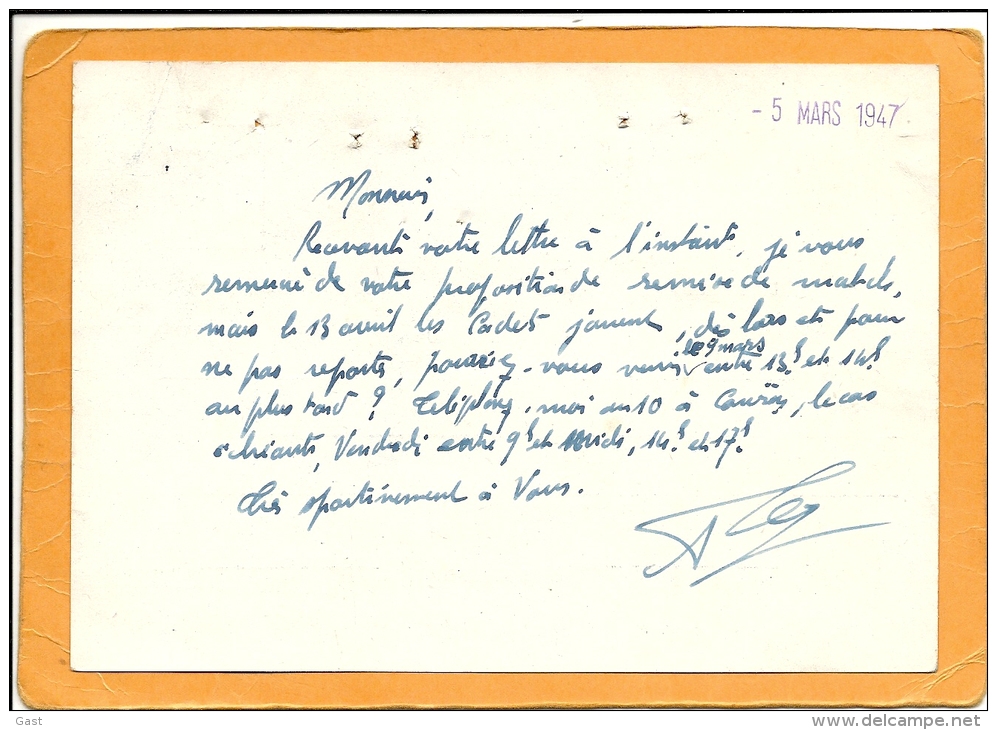 - 5 MARS 1947
Monsieur,
Recevant votre lettre à l'instant, je vous
remercie de votre proposition de remise de match,
mais le 13 avril les Cadets jouent, dès lors et pour
le 9 mars
ne pas reporter, pourriez-vous venir entre 13h et 14h
au plus tard ? Téléphonez-moi au 10 à, le cas
échéant, Vendredi entre 9h et Midi, 14h et 17h.
Très sportivement à Vous.
Gast
www.delcampe.net